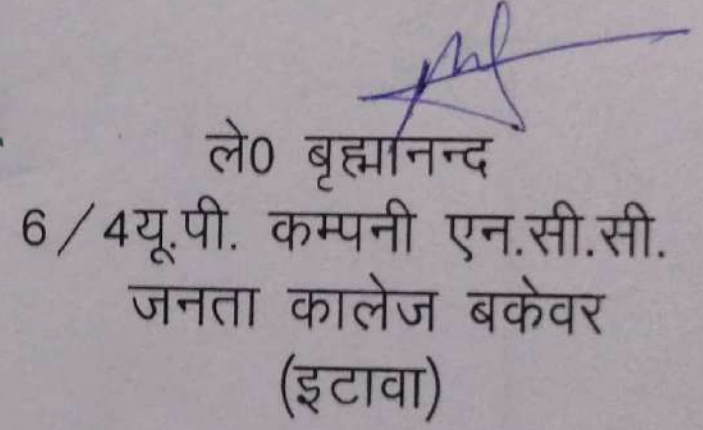 ले0 बृह्मानन्द
6/4यू.पी. कम्पनी एन.सी.सी.
जनता कालेज बकेवर
(इटावा)